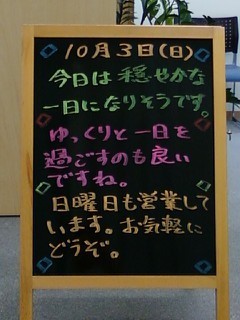 10月3日(日)
今日は穏やかな
一日になりそうです。
ゆっくりと一日を
過ごすのも良い
ですね。
日曜日も営業して
います。お気軽に
どうぞ。